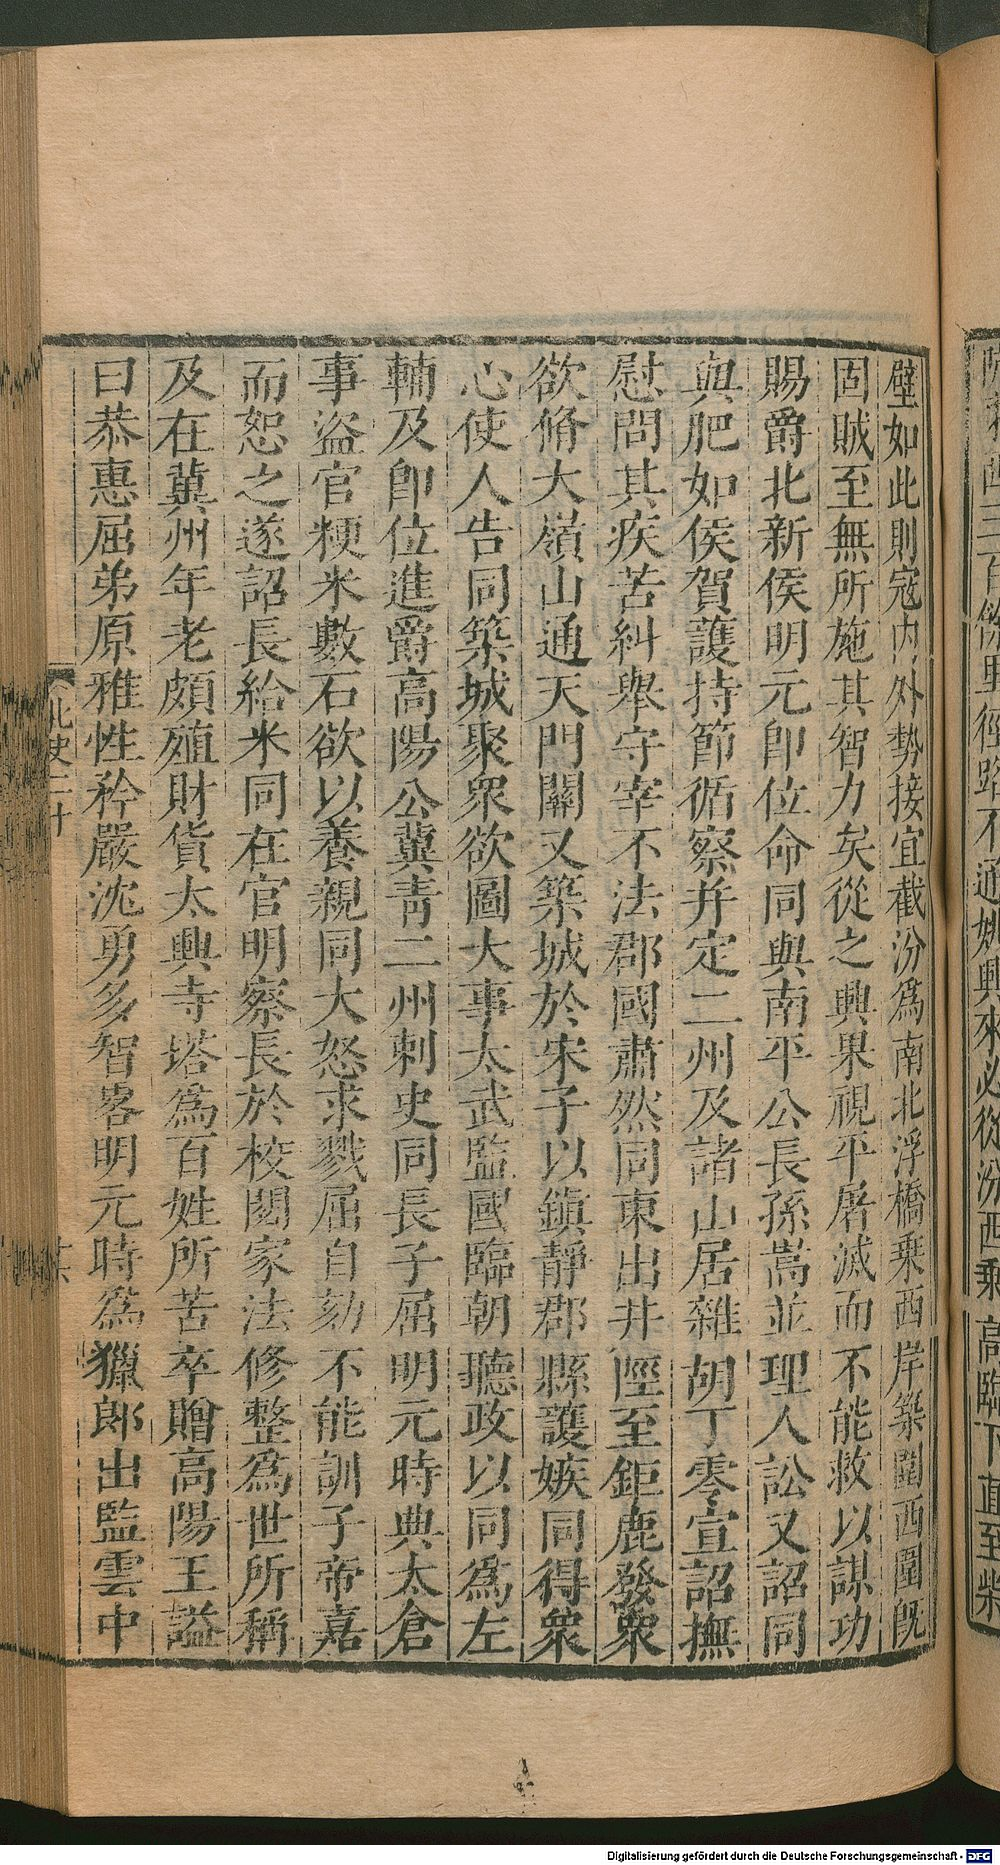 壁如此則寇內外勢接宜截汾爲南北浮橋乗西岸築圍西圍旣
固賊至無所施其智力矣從之興果視平屠滅而不能救以謀功
賜爵北新侯明元卽位命同與南平公長孫嵩並理人訟又詔同
與肥如侯賀護持節循察并定二州及諸山居雜胡丁零宣詔撫
慰問其疾苦糾舉守宰不法郡國肅然同東出井陘至鉅鹿發衆
欲脩大嶺山通天門關又築城於宋子以鎭靜郡縣護嫉同得衆
心使人告同築城聚衆欲圖大事太武監國臨朝聽政以同爲左
輔及卽位進爵高陽公冀靑二州刺史同長子屈明元時典太倉
事盜官粳米數石欲以養親同大怒求戮屈自劾不能訓子帝嘉
而恕之遂詔長給米同在官明察長於校閱家法修整爲世所稱
及在冀州年老頗殖財貨太興寺塔爲百姓所苦卒贈高陽王謚
曰恭惠屈弟原雅性矜嚴沈勇多智畧明元時爲獵郎出監雲中
北史二十
里徑路不通姚興來必從汾西乗高臨下直至柴
Digitalisierung gefördert durch die Deutsche Forschungsgemeinschaft - DFG